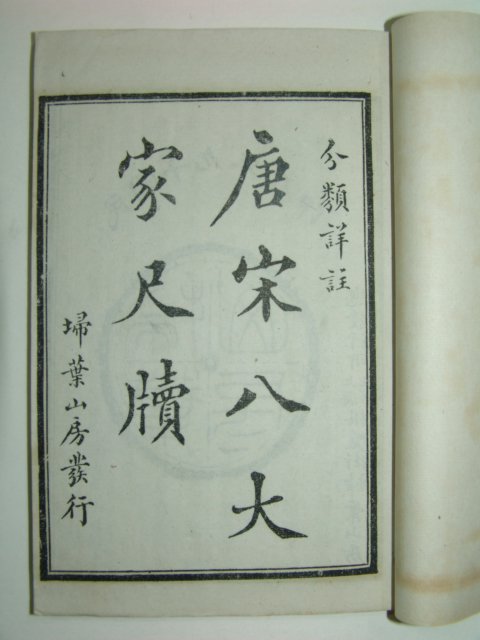 分類詳註
唐宋八大
家尺牘
埽葉山房發行